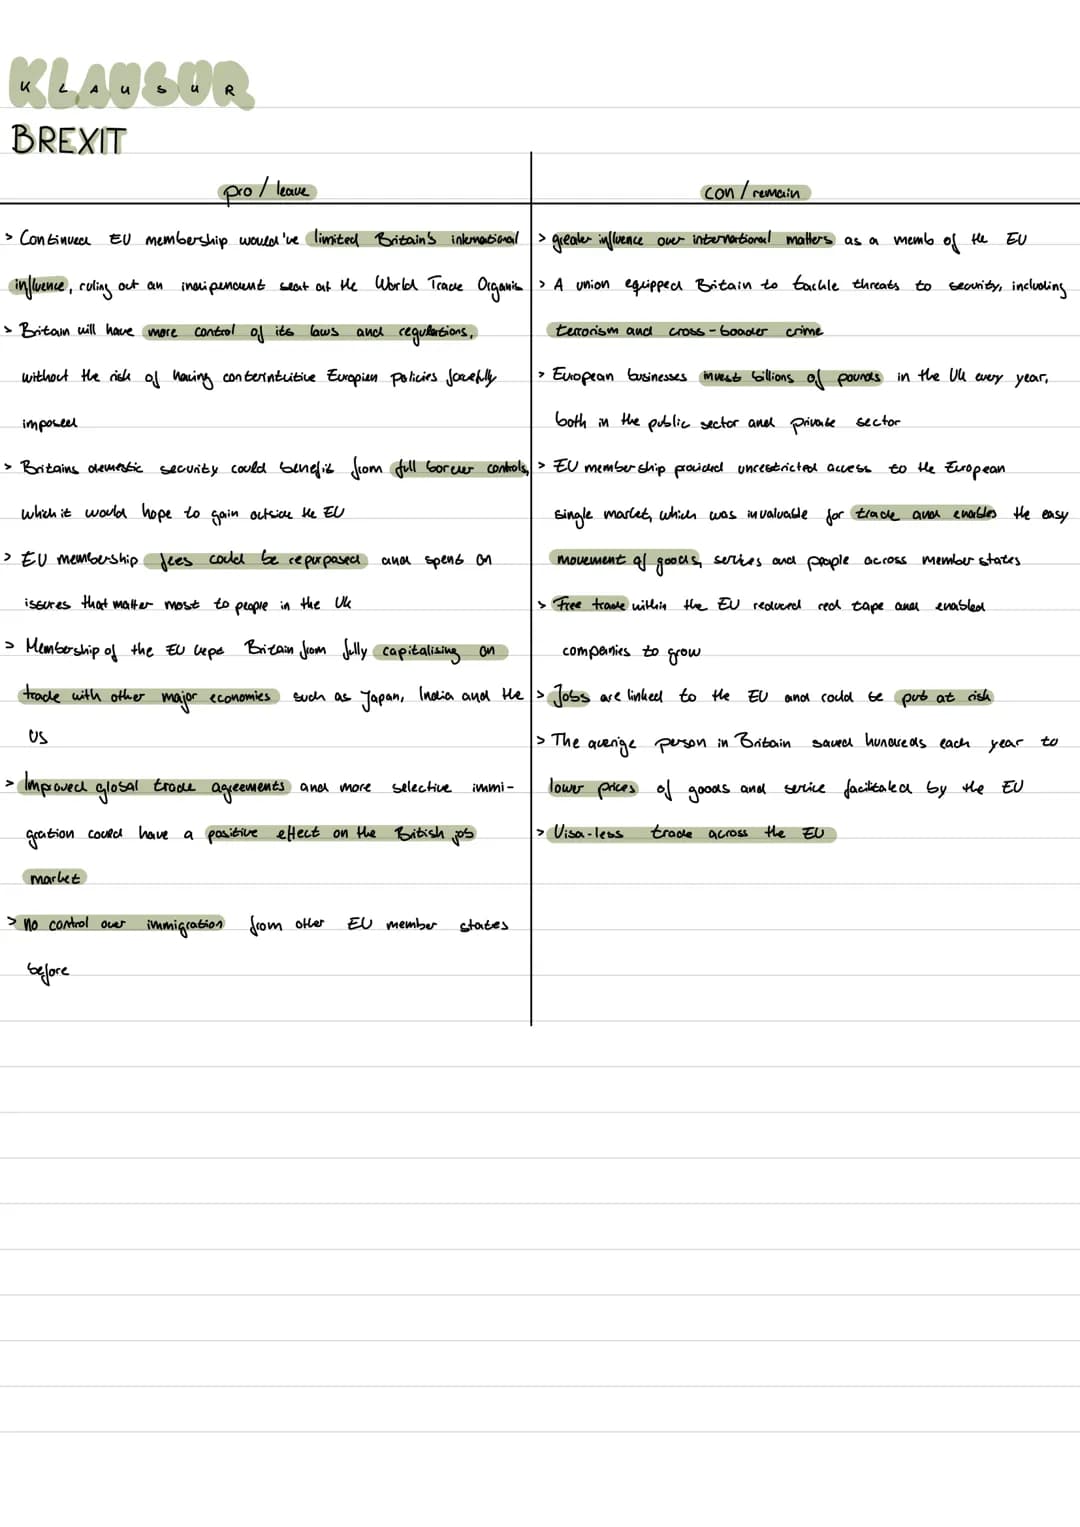 KLAUSUR
BREXIT
pro / leave
> Continued EU membership would've limited Britain's international
influence, ruling out an indipendent seat at the World Trade Organis
> Britain will have more control of its laws and regulations,
without the risk of having conterintuitive Europien policies forcefully
imposed
> Britains domestic security could benefit from full borcer controls,
which it would hope to gain outside the EU
> EU membership fees could be repurposed and spent on
issures that matter most to people in the UK
> Membership of the EU kept Britain from fully capitalising on
trade with other major economies such as Japan, India and the
US
> Improved global trade agreements and more selective immi-
gration could have a positive effect on the British job
market
> no control over immigration from other EU member states
before
con / remain
> greater influence over international matters as a memb of the EU
> A union equipped Britain to tackle threats to security, including
terrorism and cross-boarder crime
> European businesses invest billions of pounds in the UK every year,
both in the public sector and private sector
> EU membership provided unrestricted access to the European
single market, which was invaluable for trade and enables the easy
movement of goods, serives and people across member states
> Free trade within the EU reduced red tape and enabled
companies to grow
> Jobs are linked to the EU and could be put at risk
> The averige person in Britain saved hundreds each year to
lower prices of goods and serice facilitated by the EU
> Visa-less trade across the EU